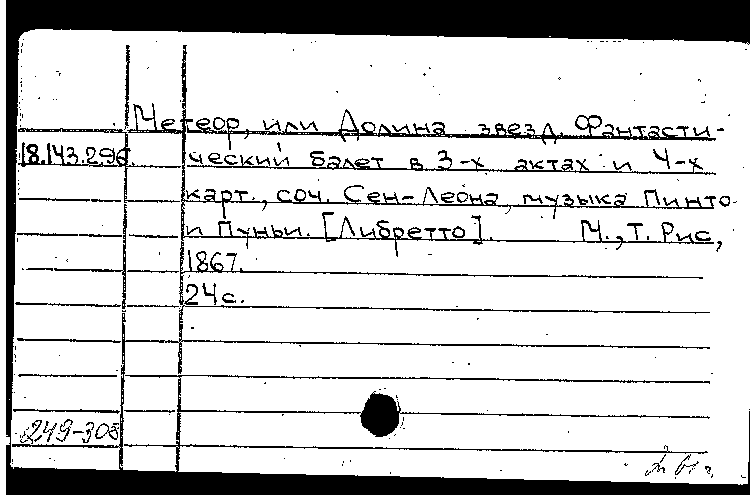 Метеор, или Долина звезд. Фантасти-
18.143.296. ческий балет в 3-х актах и 4-х
карт., соч. Сен-Леона, музыка Пинто
и Пуньи. [Либретто]. М., Т. Рис,
1867.
24 с.
249-308